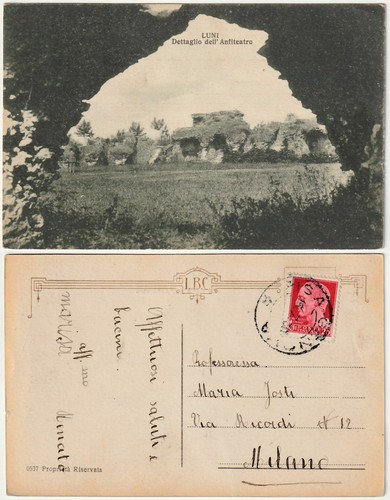 LUNI
Dettaglio dell'Anfiteatro
LBC
Affettuosi saluti e
bacioni.
aff.mo
Renato
Marisa
Professoressa
Maria Josti
Via Ricordi N 12
Milano
6537 Proprietà Riservata